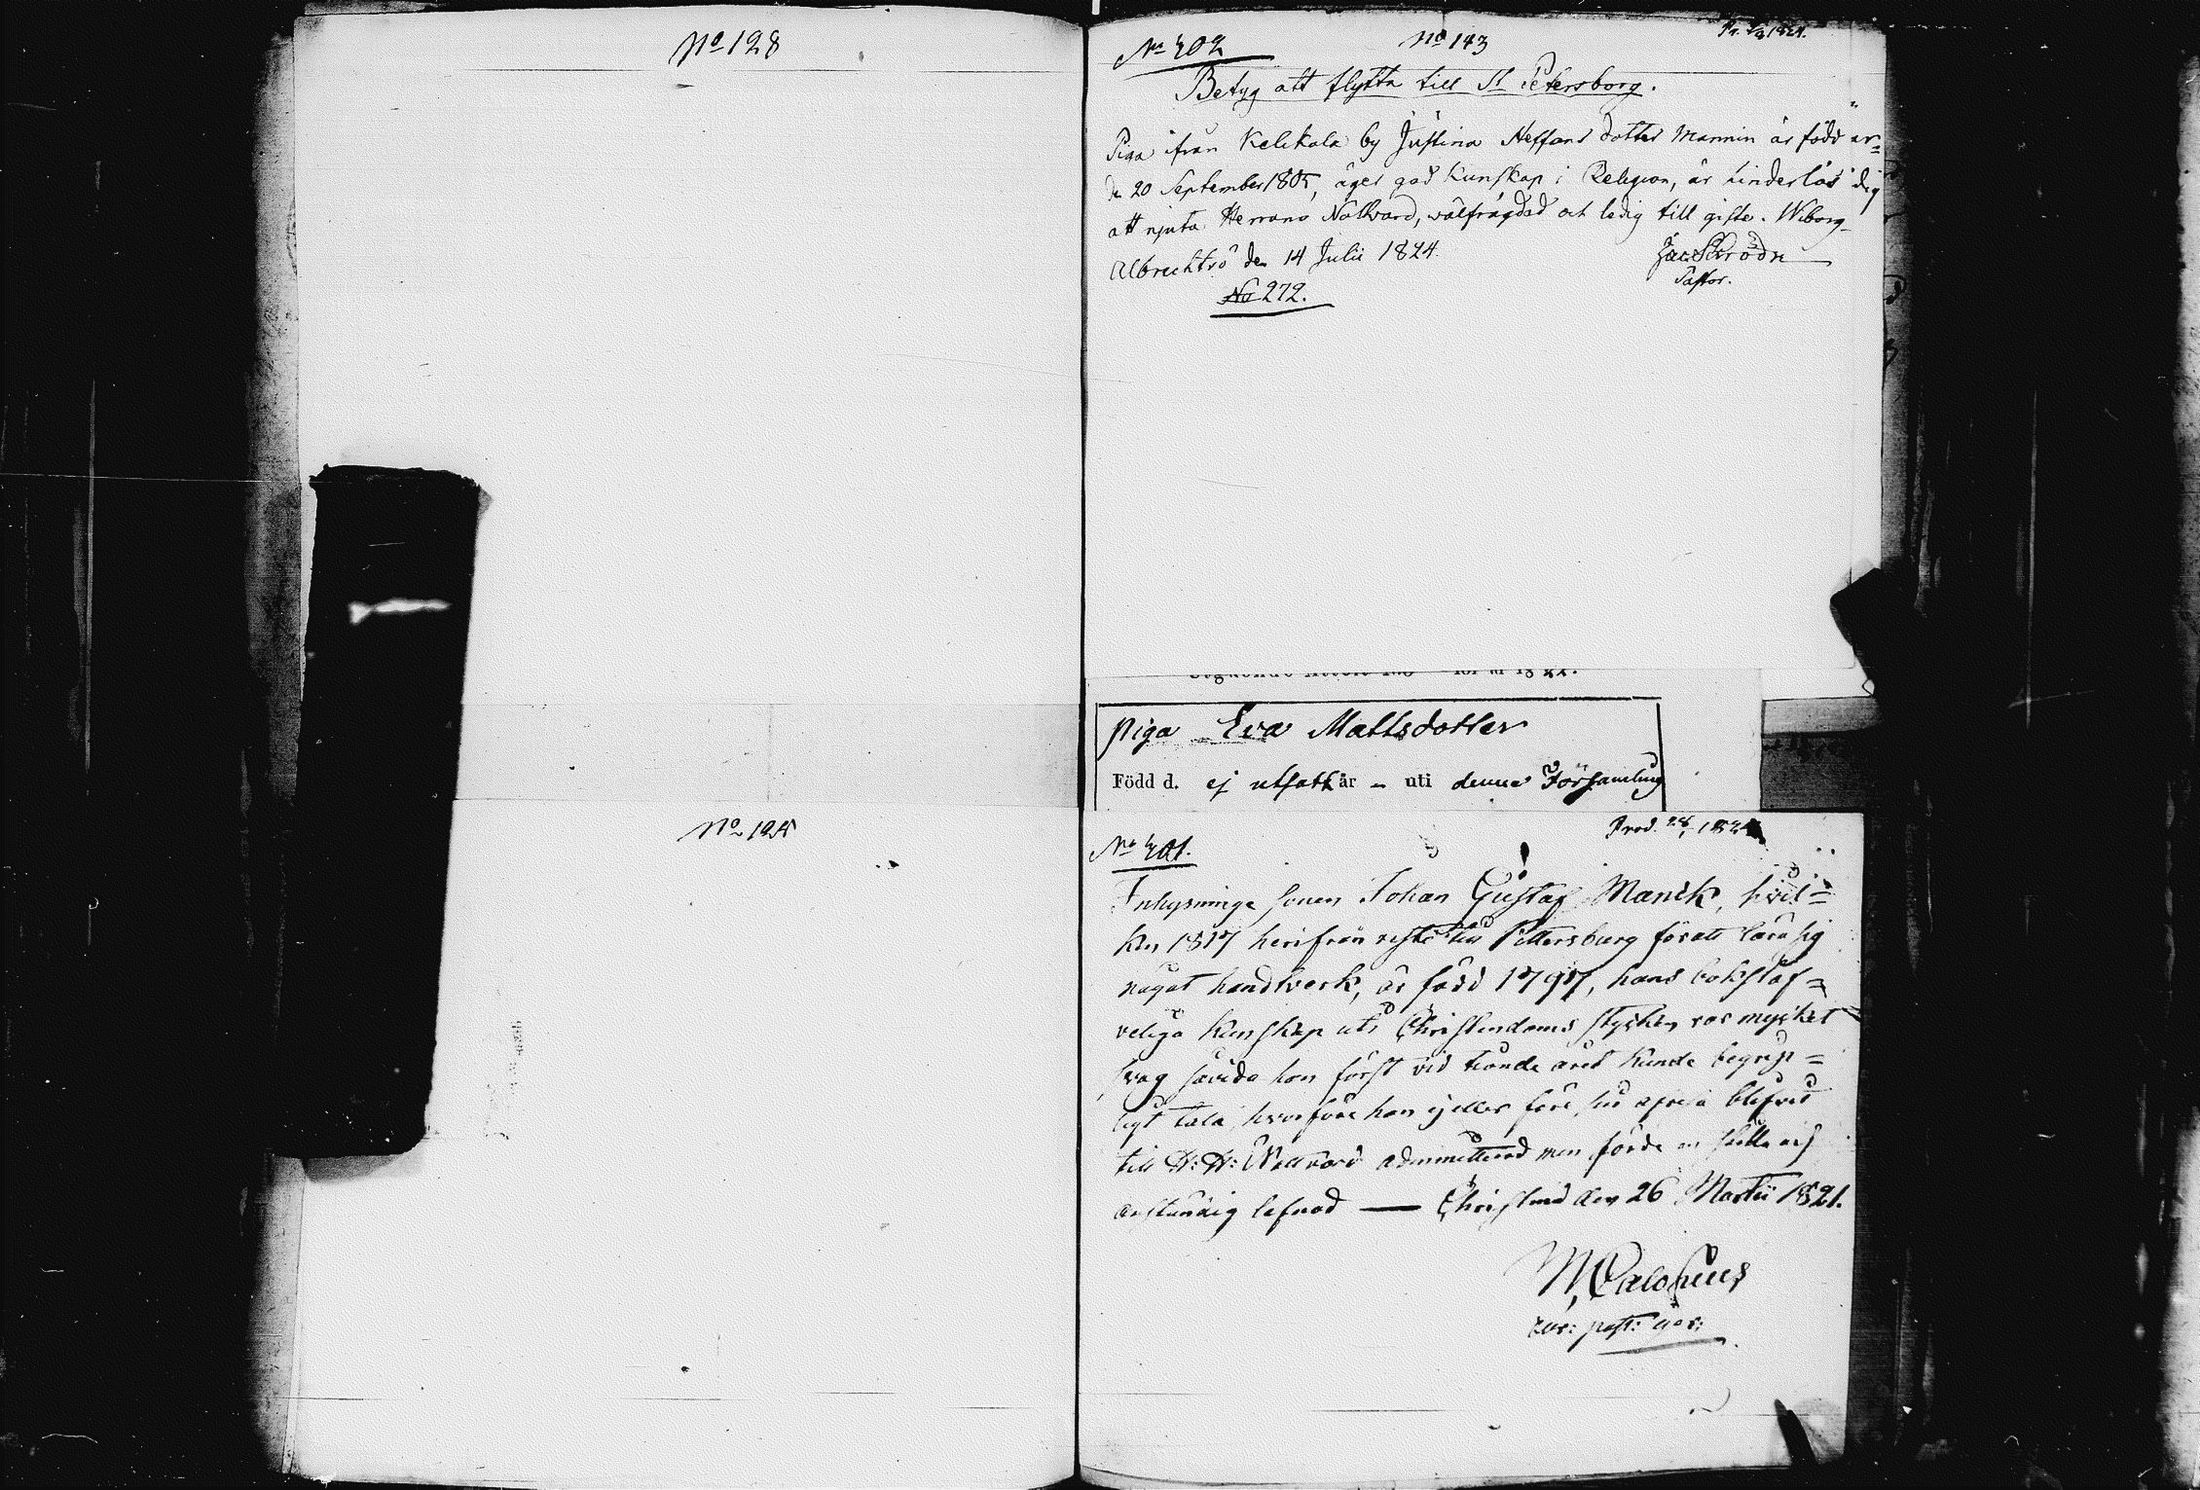 No 128
No 125
No 402 No 143
Betyg att flytta till St Petersborg.
Piga ifrån Kelikala by Justina Steffans dotter Mannin är född
den 20 September 1805, äger god Kunskap i Religion, är hinderlös
att njuta Herrans Nattvard, välfrägdad och ledig till gifte. Wiborg
Albrechtsö den 14 Julii 1824.
Pastor.
No 272.
piga Eva Mattsdotter
Född d. ej utsatt år - uti denna Församling
No 401.
Inhysinge sonen Johan Gustaf Manck, hvil=
ken 1817 herifrån reste till Pettersburg för att lära sig
något handtverk, är född 1797, hans bokstaf=
veliga kunskap uti Christendoms stycken var mycket
svag såvida han först vid tionde året kunde begrip=
ligt tala, hvarföre han ej eller före sin afresa blifvit
till H: H: Nattvard admitterad men förde en stilla och
anständig lefnad — Christina den 26 Martii 1821.
M Calonius